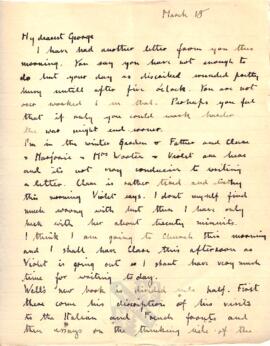 March 18
My dearest George
I have had another letter from you this
morning. You say you have not enough to
do but your day as discribed sounded pretty
busy untill after five o'clock. You are not
over worked I in that. Perhaps you feel
that if only you could work harder
the war might end sooner.
I'm in the winter Garden & Father and Clare
& Marjorie & Mrs Wooler & Violet are here
and its not very conducive to writing
a letter. Clare is rather tired and
this morning Violet says. I dont myself find
much wrong with but then I have only
been with her about twenty minuits.
I think I am going to church this morning
and I shall have Clare this afternoon as
Violet is going out so I shant have very much
time for writing to day.
Wells' new book is divided into half. First
there come his discription of his visits
to the Italian and French fronts and
then essays on the thinking side of the